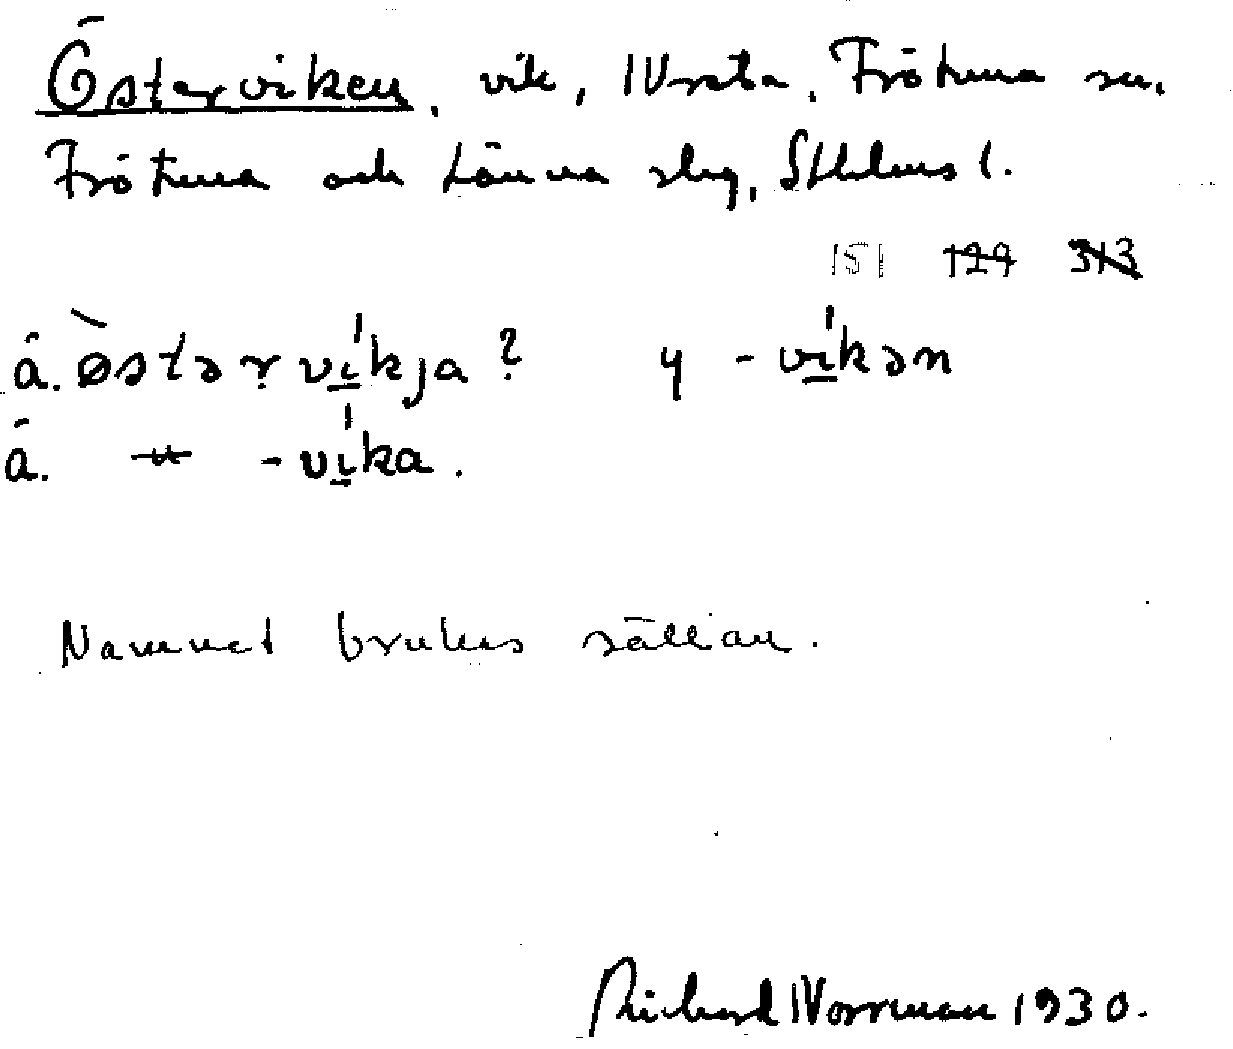 Österviken, vik, Norrsta, Frötuna sn.
Frötuna och Länna slg, Sthlms l.
151 129 313
å. ø̀stər̩ví̱kja? y -ví̱kən
å. -〃- -ví̱ka.
Namnet brukas sällan.
Richard Norrman 1930.